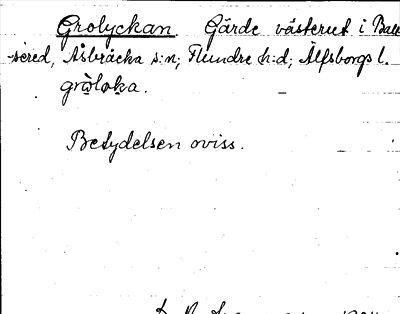 Grolyckan. Gärde västerut i Balls
-sered, Åsbräcka s:n; Flundre h:d; Älfsborgs l.
gròloka.
Betydelsen oviss.